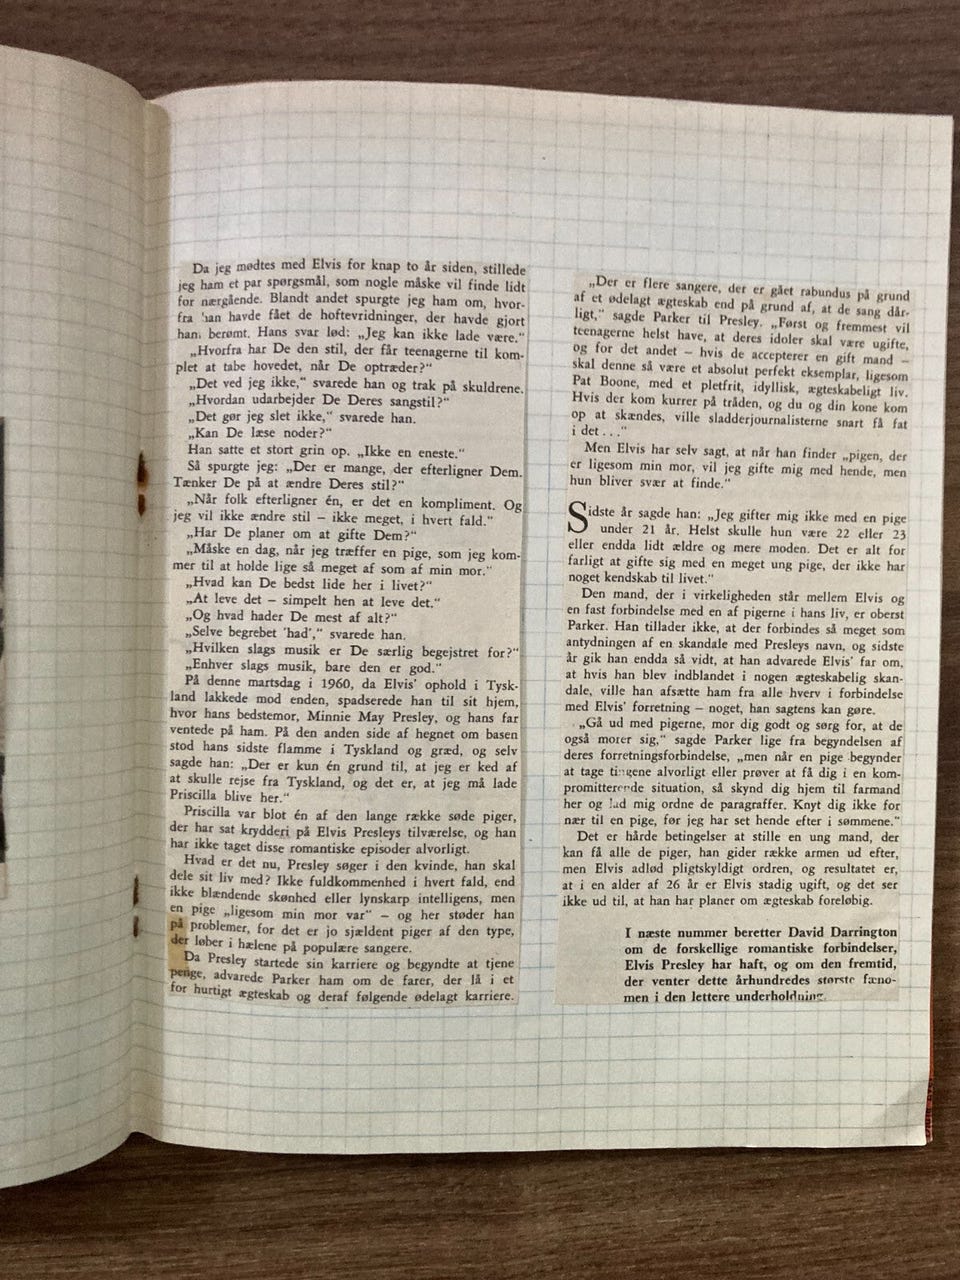 Da jeg mødtes med Elvis for knap to år siden, stillede
jeg ham et par spørgsmål, som nogle måske vil finde lidt
for nærgående. Blandt andet spurgte jeg ham om, hvor-
fra han havde fået de hoftevridninger, der havde gjort
ham berømt. Hans svar lød: „Jeg kan ikke lade være.“
„Hvorfra har De den stil, der får teenagerne til kom-
plet at tabe hovedet, når De optræder?“
„Det ved jeg ikke,“ svarede han og trak på skuldrene.
„Hvordan udarbejder De Deres sangstil?“
„Det gør jeg slet ikke,“ svarede han.
„Kan De læse noder?“
Han satte et stort grin op. „Ikke en eneste.“
Så spurgte jeg: „Der er mange, der efterligner Dem.
Tænker De på at ændre Deres stil?“
„Når folk efterligner én, er det en kompliment. Og
jeg vil ikke ændre stil – ikke meget, i hvert fald.“
„Har De planer om at gifte Dem?“
„Måske en dag, når jeg træffer en pige, som jeg kom-
mer til at holde lige så meget af som af min mor.“
„Hvad kan De bedst lide her i livet?“
„At leve det – simpelt hen at leve det.“
„Og hvad hader De mest af alt?“
„Selve begrebet 'had',“ svarede han.
„Hvilken slags musik er De særlig begejstret for?“
„Enhver slags musik, bare den er god.“
På denne martsdag i 1960, da Elvis' ophold i Tysk-
land lakkede mod enden, spadserede han til sit hjem,
hvor hans bedstemor, Minnie May Presley, og hans far
ventede på ham. På den anden side af hegnet om basen
stod hans sidste flamme i Tyskland og græd, og selv
sagde han: „Der er kun én grund til, at jeg er ked af
at skulle rejse fra Tyskland, og det er, at jeg må lade
Priscilla blive her.“
Priscilla var blot én af den lange række søde piger,
der har sat krydderi på Elvis Presleys tilværelse, og han
har ikke taget disse romantiske episoder alvorligt.
Hvad er det nu, Presley søger i den kvinde, han skal
dele sit liv med? Ikke fuldkommenhed i hvert fald, end
ikke blændende skønhed eller lynskarp intelligens, men
en pige „ligesom min mor var“ – og her støder han
på problemer, for det er jo sjældent piger af den type,
der løber i hælene på populære sangere.
Da Presley startede sin karriere og begyndte at tjene
penge, advarede Parker ham om de farer, der lå i et
for hurtigt ægteskab og deraf følgende ødelagt karriere.
„Der er flere sangere, der er gået rabundus på grund
af et ødelagt ægteskab end på grund af, at de sang dår-
ligt,“ sagde Parker til Presley. „Først og fremmest vil
teenagerne helst have, at deres idoler skal være ugifte,
og for det andet – hvis de accepterer en gift mand –
skal denne så være et absolut perfekt eksemplar, ligesom
Pat Boone, med et pletfrit, idyllisk, ægteskabeligt liv.
Hvis der kom kurrer på tråden, og du og din kone kom
op at skændes, ville sladderjournalisterne snart få fat
i det . . .“
Men Elvis har selv sagt, at når han finder „pigen, der
er ligesom min mor, vil jeg gifte mig med hende, men
hun bliver svær at finde.“
Sidste år sagde han: „Jeg gifter mig ikke med en pige
under 21 år. Helst skulle hun være 22 eller 23
eller endda lidt ældre og mere moden. Det er alt for
farligt at gifte sig med en meget ung pige, der ikke har
noget kendskab til livet.“
Den mand, der i virkeligheden står mellem Elvis og
en fast forbindelse med en af pigerne i hans liv, er oberst
Parker. Han tillader ikke, at der forbindes så meget som
antydningen af en skandale med Presleys navn, og sidste
år gik han endda så vidt, at han advarede Elvis' far om,
at hvis han blev indblandet i nogen ægteskabelig skan-
dale, ville han afsætte ham fra alle hverv i forbindelse
med Elvis' forretning – noget, han sagtens kan gøre.
„Gå ud med pigerne, mor dig godt og sørg for, at de
også morer sig,“ sagde Parker lige fra begyndelsen af
deres forretningsforbindelse, „men når en pige begynder
at tage tingene alvorligt eller prøver at få dig i en kom-
promitterende situation, så skynd dig hjem til farmand
her og lad mig ordne de paragraffer. Knyt dig ikke for
nær til en pige, før jeg har set hende efter i sømmene.“
Det er hårde betingelser at stille en ung mand, der
kan få alle de piger, han gider række armen ud efter,
men Elvis adlød pligtskyldigt ordren, og resultatet er,
at i en alder af 26 år er Elvis stadig ugift, og det ser
ikke ud til, at han har planer om ægteskab foreløbig.
I næste nummer beretter David Darrington
om de forskellige romantiske forbindelser,
Elvis Presley har haft, og om den fremtid,
der venter dette århundredes største fæno-
men i den lettere underholdning.